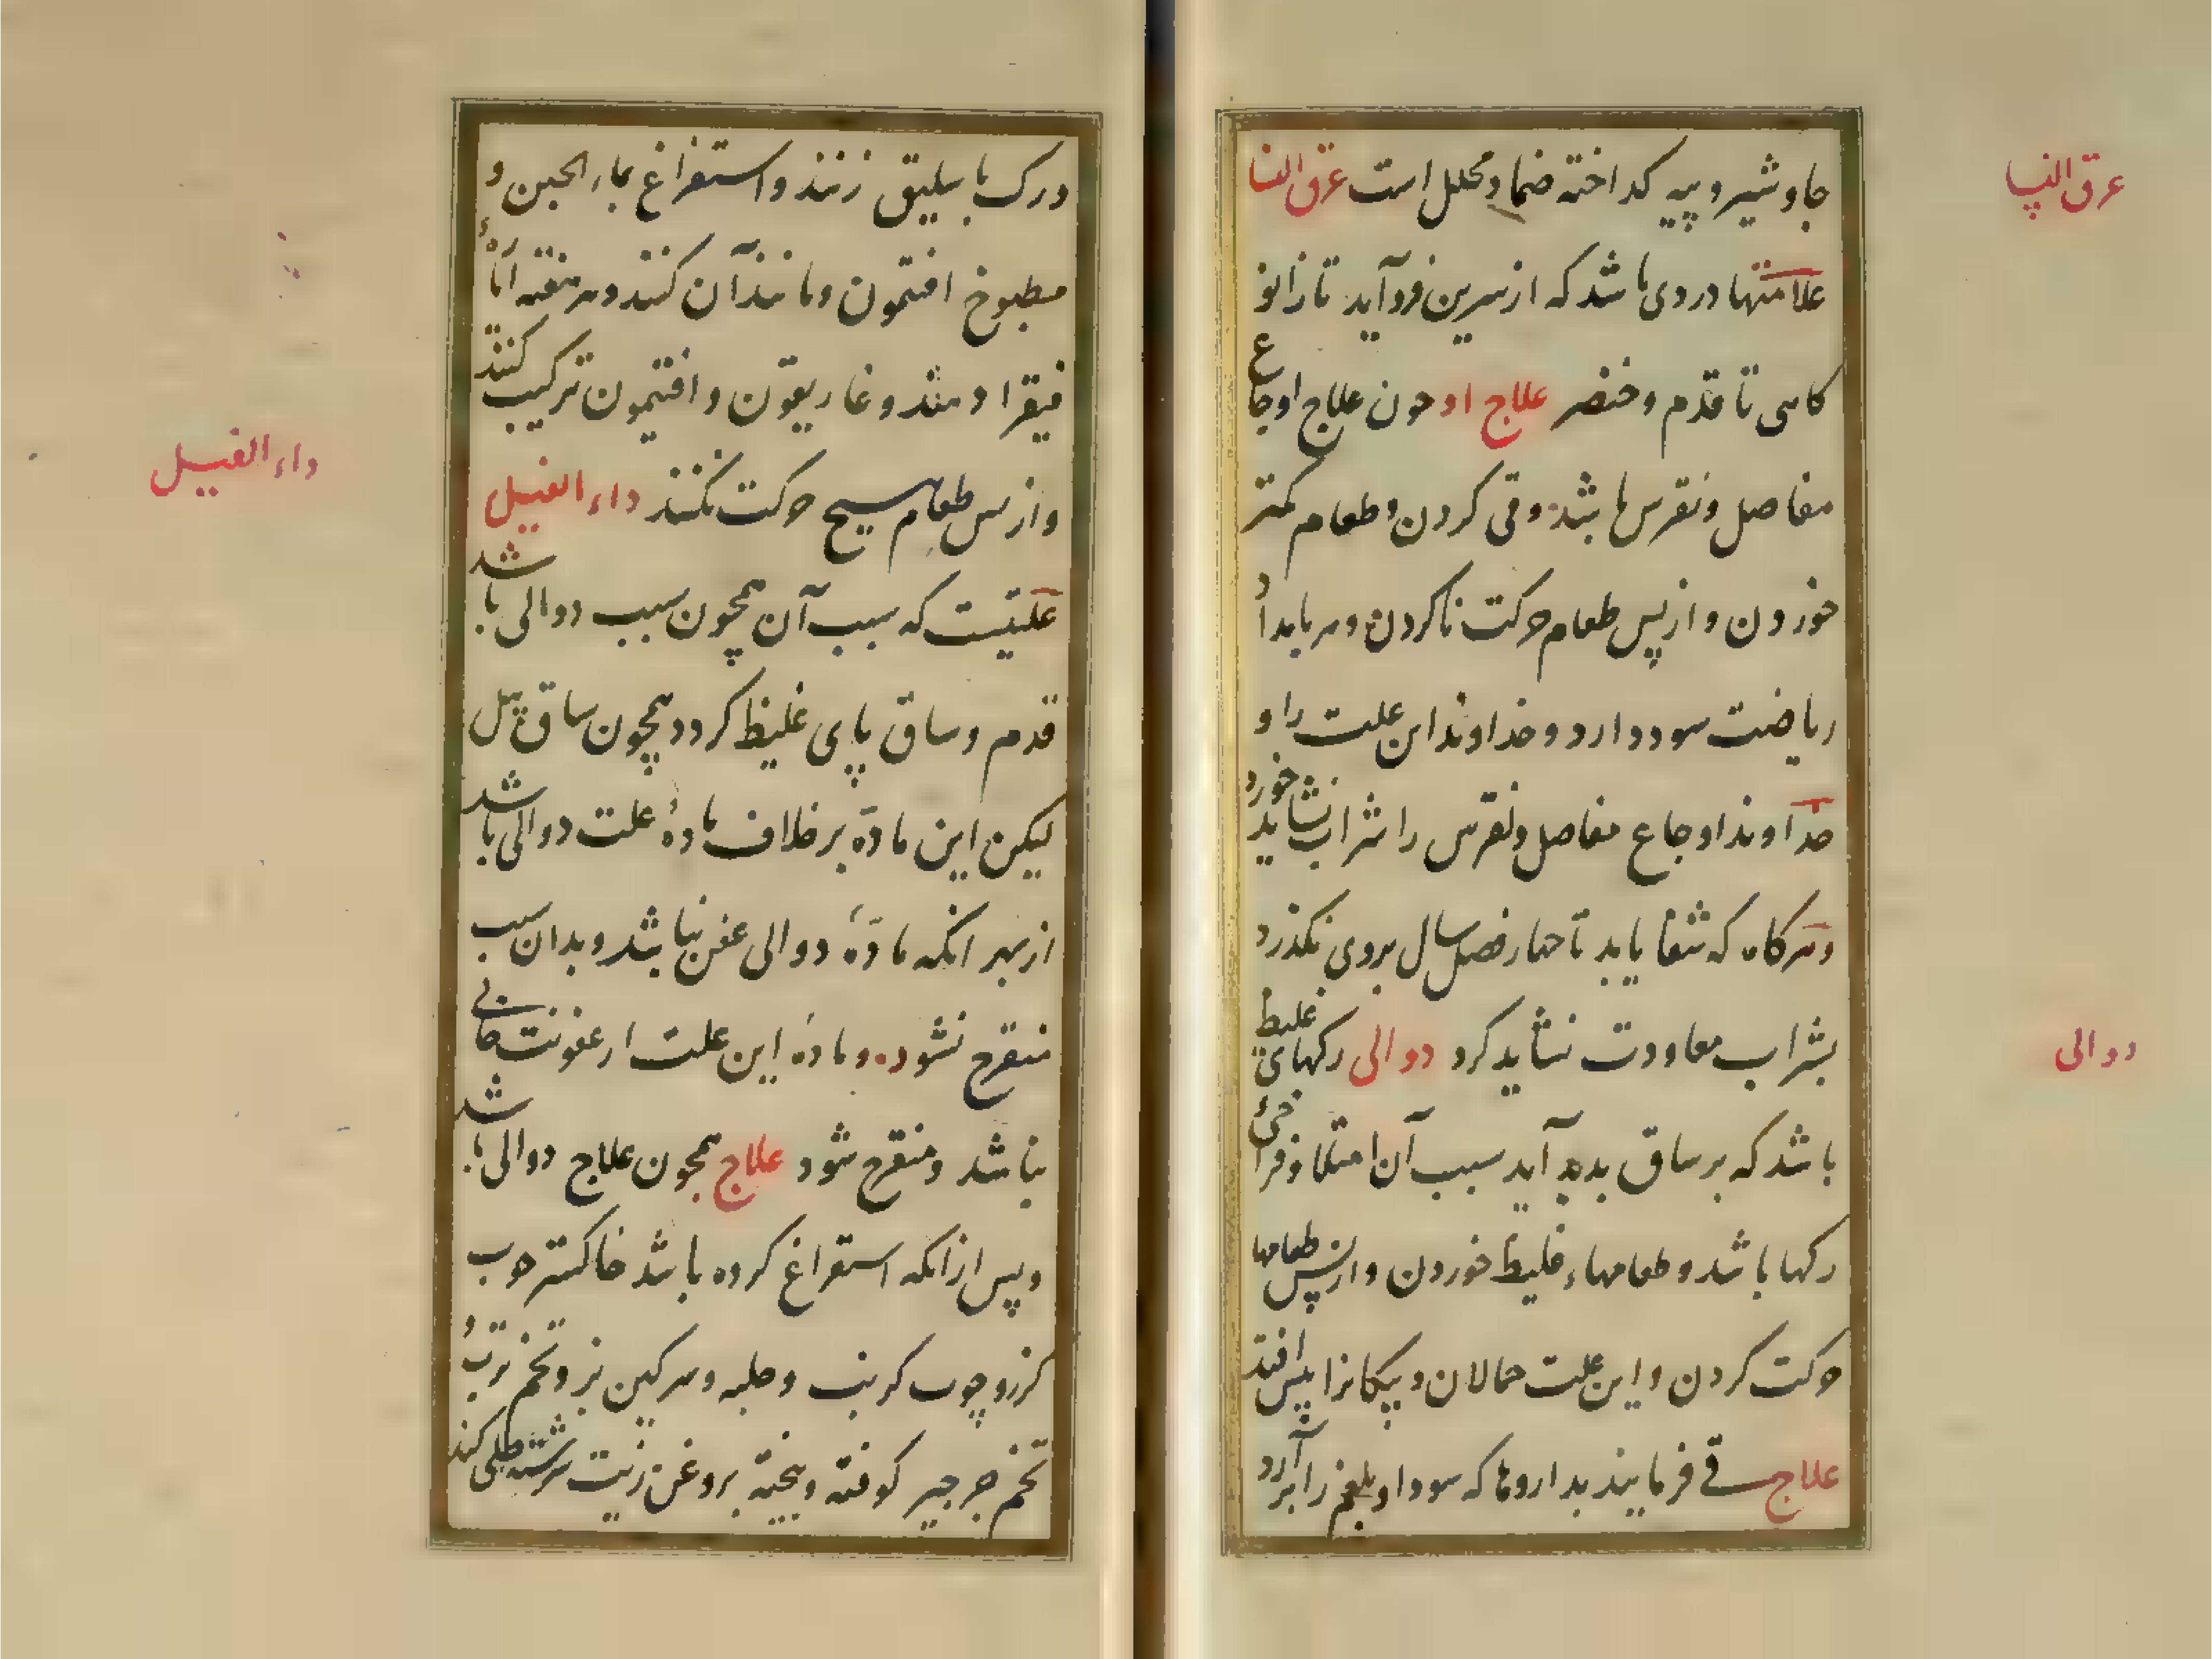 عرق النسا
جاوشیر و پیه کداخته ضماد محلل است عرق النسا
علامتها دردی باشد که از سرین فروآید تا زانو
کاهی تا قدم و خنصر علاج او چون علاج اوجاع
مفاصل و نقرس باشد و قی کردن و طعام کمتر
خوردن و از پس طعام حرکت ناکردن و هر بامداد
ریاضت سود دارد و خداوند این علت را و
خداوند اوجاع مفاصل و نقرس را شراب نشاید خورد
و هرکاه که شفا یابد تا چهار فصل سال بروی نکذرد
بشراب معاودت نشاید کرد دوالی رکهای غلیظ
دوالی
باشد که بر ساق پدید آید سبب آن امتلا و فراخی
رکها باشد و طعامهاء غلیظ خوردن و از پس طعامها
حرکت کردن و این علت حمالان و پیکانرا بیش افتد
علاج قی فرمایند بداروها که سودا و بلغم را برآرد
و رک باسلیق زنند و استفراغ بماء الجبن و
مطبوخ افتیمون و مانند آن کنند و هر هفته ایاره
فیقرا دهند و غاریقون و افتیمون ترکیب کنند
و از پس طعام هیچ حرکت نکنند داء الفیل
داء الفیل
علتیست که سبب آن همچون سبب دوالی باشد
قدم و ساق پای غلیظ کردد همچون ساق پیل
لیکن این مادّه بر خلاف مادهٔ علت دوالی باشد
از بهر انکه مادّهٔ دوالی عفن نباشد و بدان سبب
متقرح نشود و مادهٔ این علت از عفونت خالی
نباشد و متقرح شود علاج همچون علاج دوالی باشد
و پس از انکه استفراغ کرده باشد خاکستر چوب
کزر و چوب کرنب و حلبه و سرکین بز و تخم ترب و
تخم جرجیر کوفته و بیخته بروغن زیت سرشته طلی کند